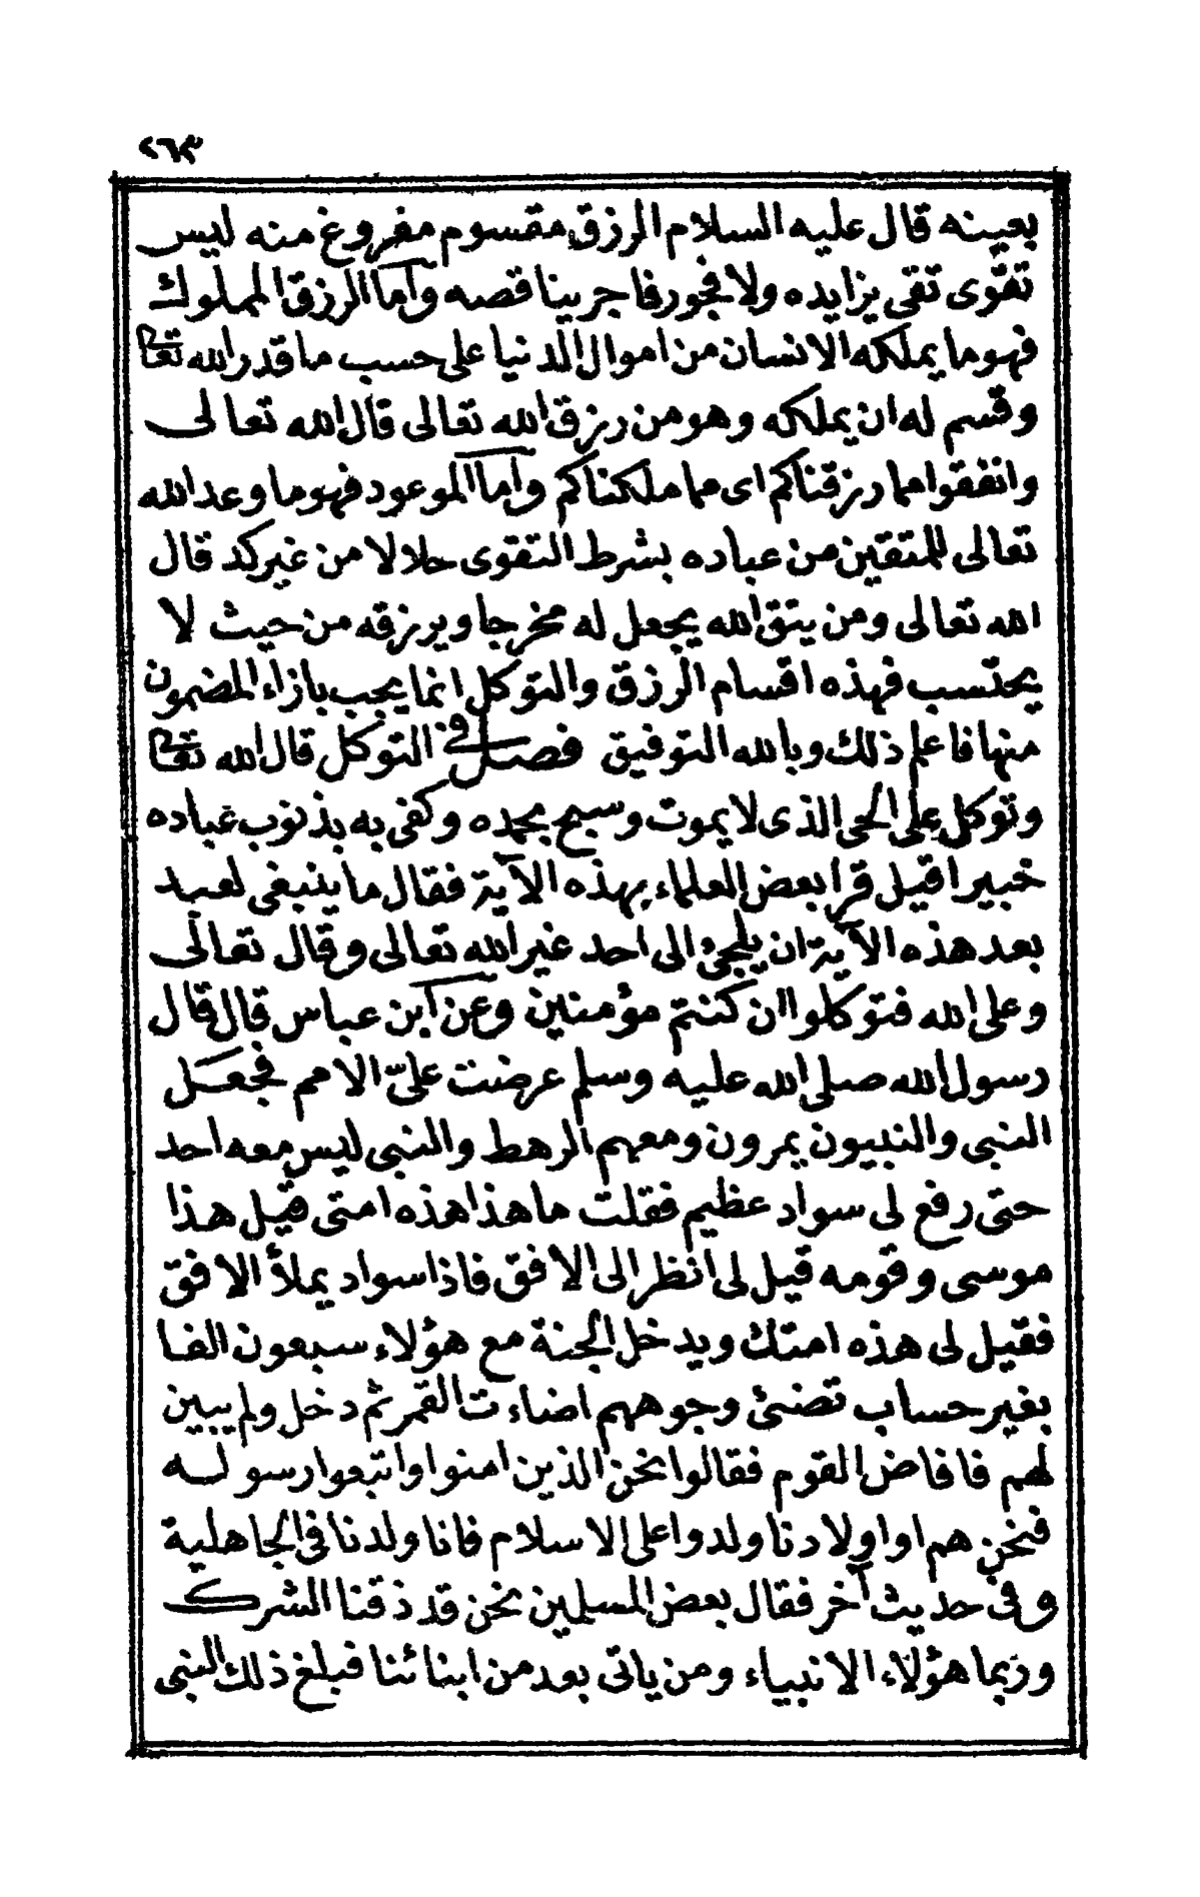 ٢٦٣
بعينه قال عليه السلام الرزق مقسوم مفروغ منه ليس
تقوى تقى يزايده ولا فجور فاجر بينا قصه وأما الرزق المملوك
فهو ما يملكه الانسان من اموال الدنيا على حسب ما قدر الله تعا
وقسم له ان يملكه وهو من رزق الله تعالى قال الله تعالى
وانفقوا مما رزقناكم اى مما ملكناكم وأما الموعود فهو ما وعد الله
تعالى للمتقين من عباده بشرط التقوى حلالا من غير كد قال
الله تعالى ومن يتق الله يجعل له مخرجا ويرزقه من حيث لا
يحتسب فهذه اقسام الرزق والتوكل انما يجب بازاء المضمون
منها فاعلم ذلك وبالله التوفيق فصل فى التوكل قال الله تعا
وتوكل على الحى الذى لا يموت وسبح بحمده وكفى به بذنوب عباده
خبيرا قيل قرا بعض العلماء بهذه الآية فقال ما ينبغى لعبد
بعد هذه الآية ان يلجئ الى احد غير الله تعالى وقال تعالى
وعلى الله فتوكلوا ان كنتم مؤمنين وعن ابن عباس قال قال
رسول الله صلى الله عليه وسلم عرضت علىّ الامم فجعل
النبى والنبيون يمرون ومعهم الرهط والنبى ليس معه احد
حتى رفع لى سواد عظيم فقلت ما هذا هذه امتى قيل هذا
موسى وقومه قيل لى انظر الى الافق فاذا سواد يملأ الافق
فقيل لى هذه امتك ويدخل الجنة مع هؤلاء سبعون الفا
بغير حساب تضئ وجوههم اضاءت القمر ثم دخل ولم يبين
لهم فافاض القوم فقالوا نحن الذين امنوا واتبعوا رسوله
فنحن هم او اولادنا ولدوا على الاسلام فانا ولدنا فى الجاهلية
وفى حديث آخر فقال بعض المسلمين نحن قد ذقنا الشرك
وربما هؤلاء الانبياء ومن ياتى بعد من ابنائنا فبلغ ذلك النبى